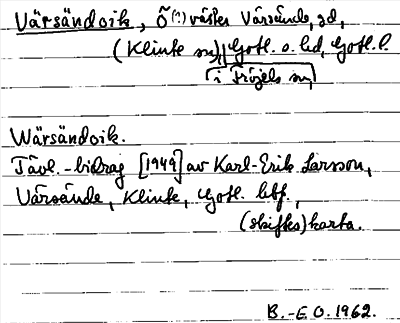 Värsändvik, Ö(?) väster Värsände, gd,
(Klinte sn) Gotl. s. hd, Gotl. l.
i Fröjels sn,
Wärsändvik.
Tävl.-bidrag [1949] av Karl-Erik Larsson,
Värsände, Klinte, Gotl. 
(skiftes)karta.
B.-E O. 1962.